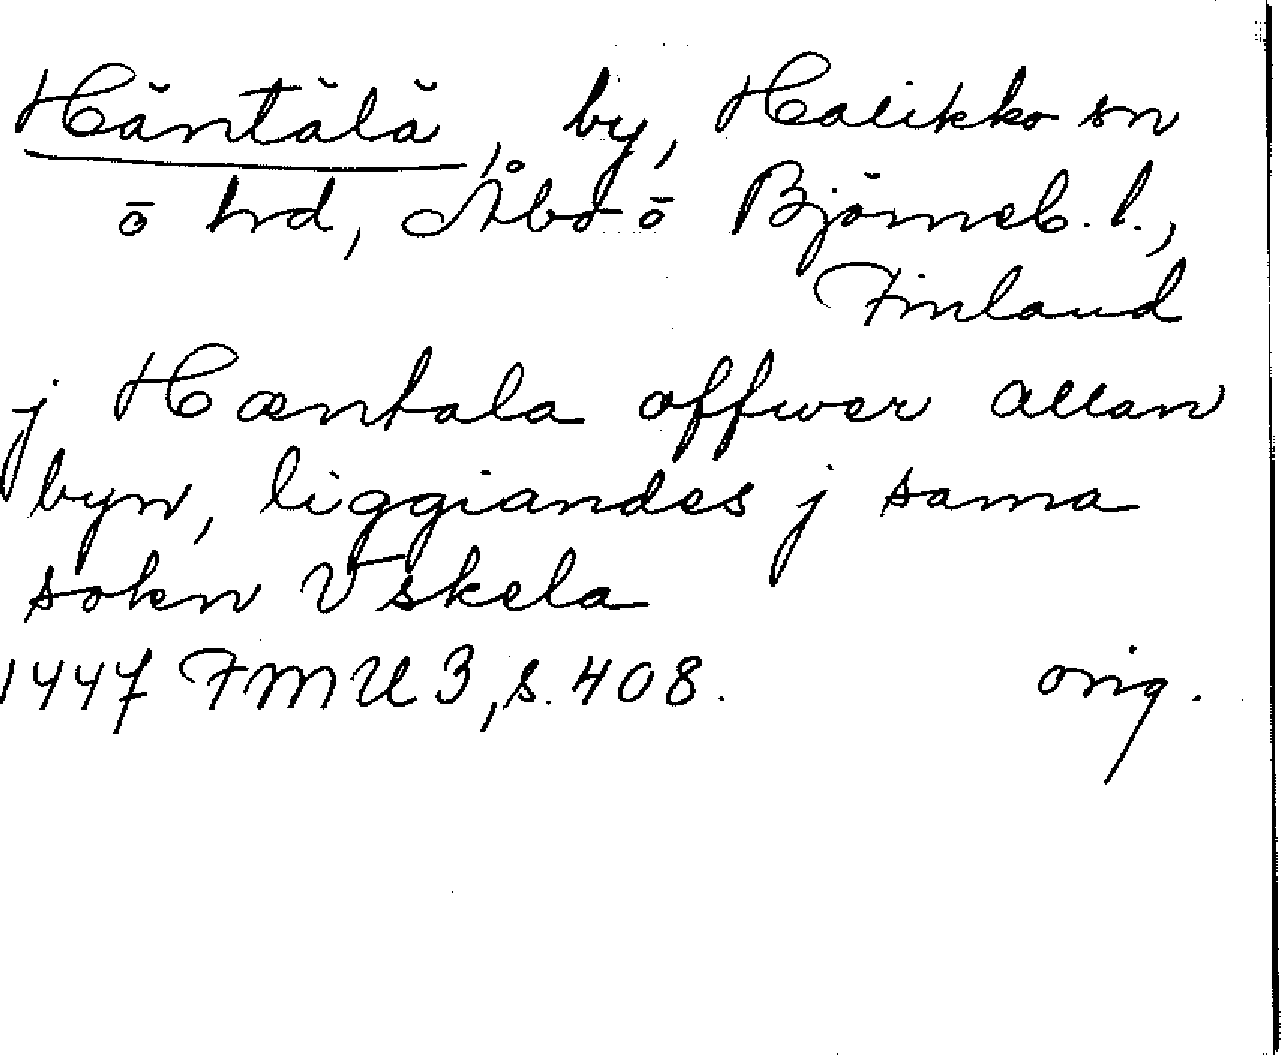 Häntälä, by, Halikko sn
ō hrd, Åbo ō Björneb. l.,
Finland
j Hæntala offwer allan
byn, liggiandes j sama
sokn Vskela
1447 FMU 3, s. 408. orig.